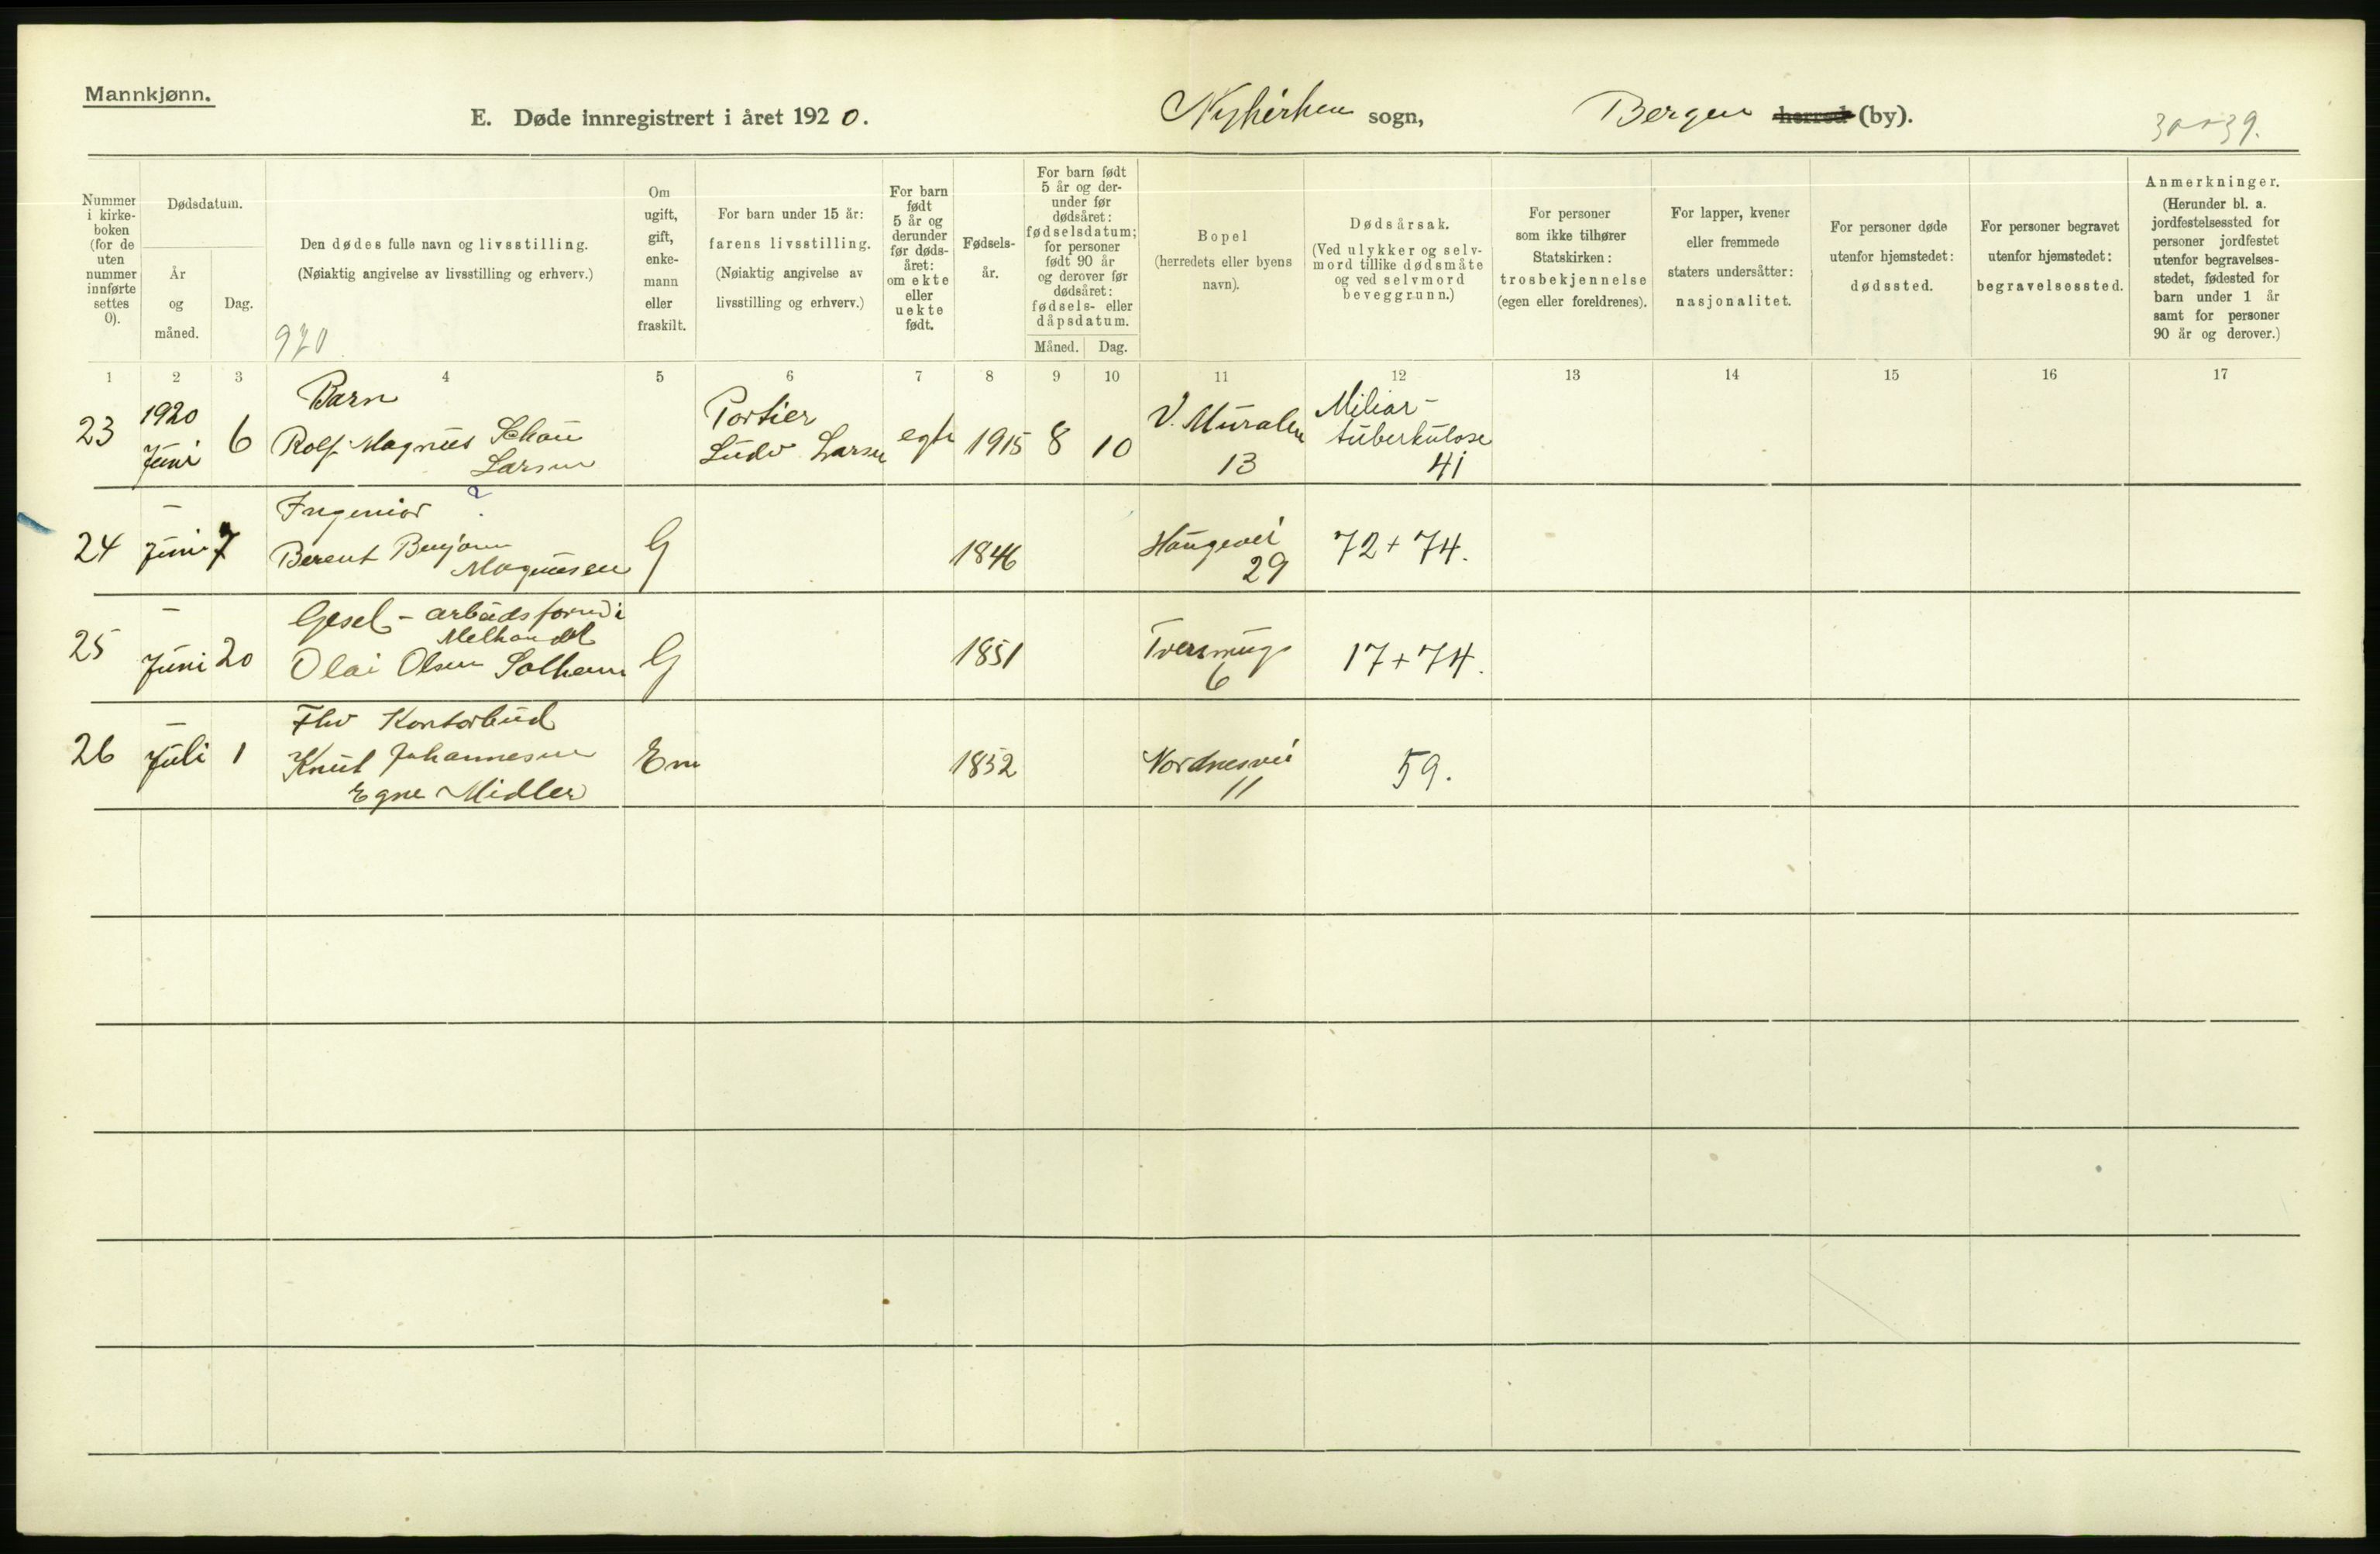 Mannkjønn.
E. Døde innregistrert i året 1920.
Nykirken sogn,
Bergen herred (by).
Nummer i kirke- boken (for de uten nummer innførte settes 0).
Dødsdatum.
År og måned.
Dag.
Den dødes fulle navn og livsstilling.
(Nøiaktig angivelse av livsstilling og erhverv.)
920
Om ugift, gift, enke- mann eller fraskilt.
For barn under 15 år:
farens livsstilling.
(Nøiaktig angivelse av
livsstilling og erhverv.)
For barn født 5 år og derunder før døds- året: om ekte eller uekte født.
Fødsels- år.
For barn født 5 år og der- under før dødsåret: fødselsdatum; for personer født 90 år og derover før dødsåret: fødsels- eller dåpsdatum.
Måned.
Dag.
Bopel
(herredets eller byens
navn).
Dødsårsak.
(Ved ulykker og selv-
mord tillike dødsmåte
og ved selvmord
beveggrunn.)
For personer
som ikke tilhører
Statskirken:
trosbekjennelse
(egen eller foreldrenes).
For lapper, kvener
eller fremmede
staters undersåtter:
nasjonalitet.
For personer døde
utenfor hjemstedet:
dødssted.
For personer begravet
utenfor hjemstedet:
begravelsessted.
Anmerkninger.
(Herunder bl. a.
jordfestelsessted for
personer jordfestet
utenfor begravelses-
stedet, fødested for
barn under 1 år
samt for personer
90 år og derover.)
1 2 3 4 5 6 7 8 9 10 11 12 13 14 15 16 17
Barn
23 1920 Juni 6 Rolf Magnus Schau Larsen
Portier
Ludv Larsen egte 1915 8 10 V. Muralm 13
Miliar-
tuberkulose
41
Ingeniør ?
24 – Juni 7 Berent Benjam Magnussen G 1846 Haugevei 29 72+74.
Gesel – arbeidsform i
Melhandel
25 – Juni 20 Olai Olsen Solheim G 1851 Tversmug 6 17+74.
Fhv Kontorbud
26 – Juli 1 Knut Johannesen Em 1852 Nordnesvei 11 59.
Egne Midler